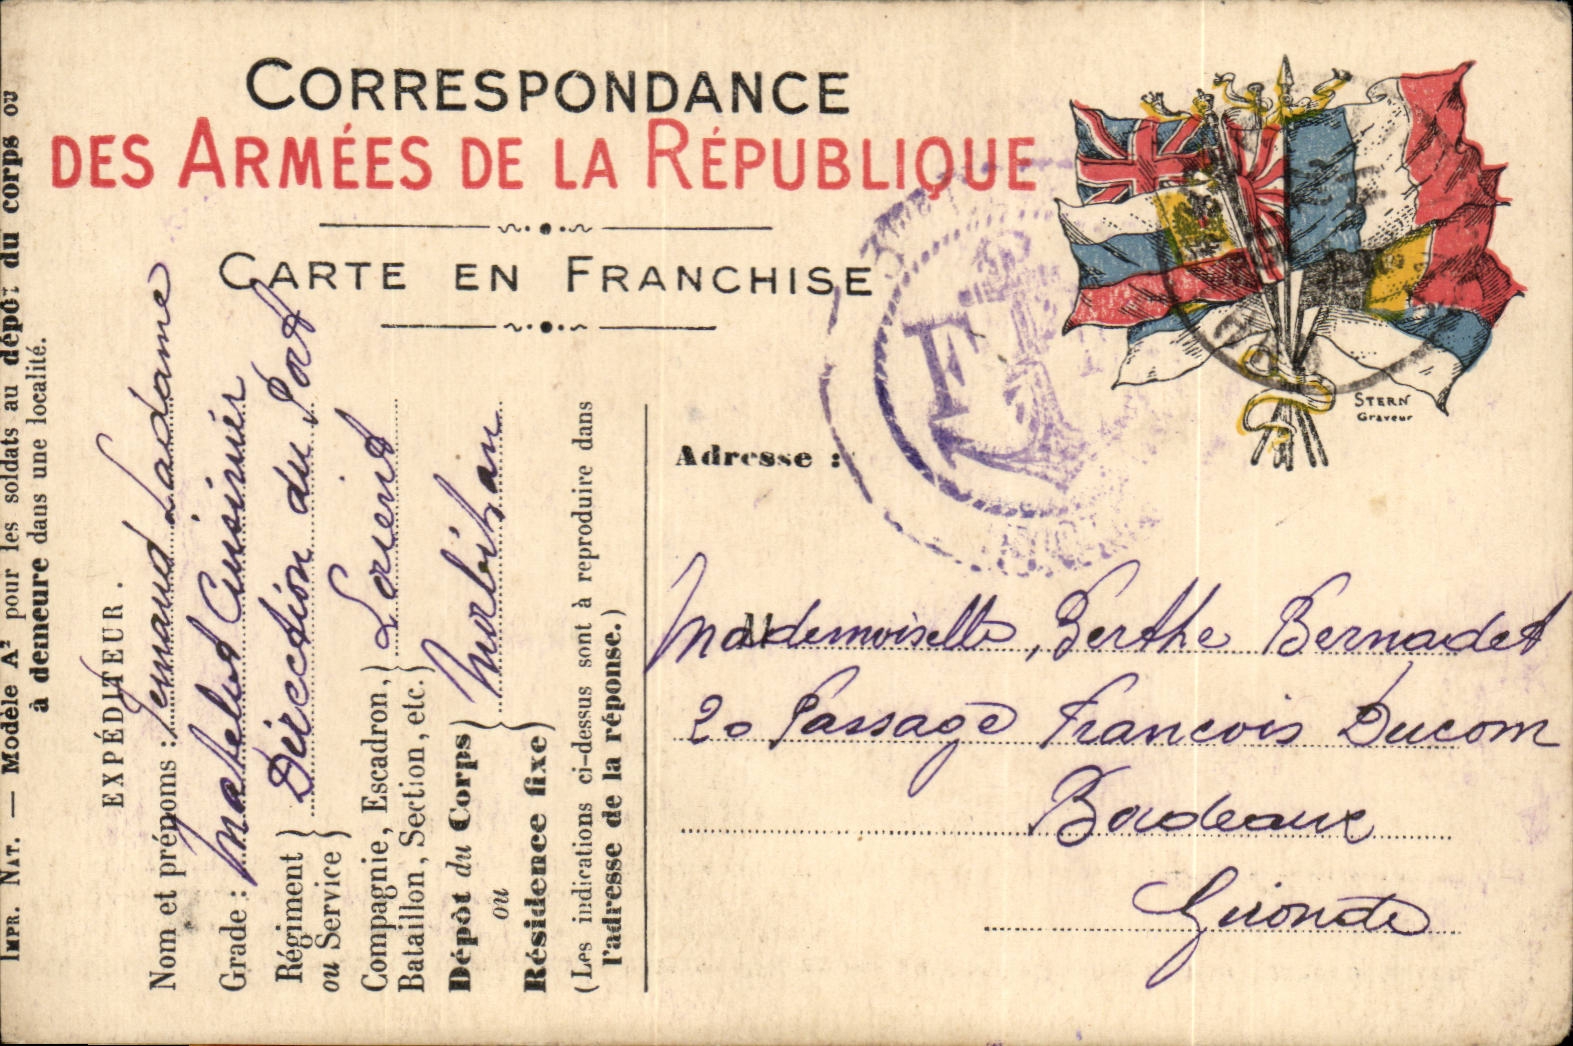 CORRESPONDANCE
DES ARMÉES DE LA RÉPUBLIQUE
CARTE EN FRANCHISE
STERN
Graveur
IMPR. NAT. — Modèle A² pour les soldats au dépôt du corps ou
à demeure dans une localité.
EXPÉDITEUR.
Nom et prénoms : Fernand Ladame
Grade : Matelot Cuisinier
Régiment
ou Service } Direction du Port
Compagnie, Escadron,
Bataillon, Section, etc. } Lorient
Dépôt du Corps
ou
Résidence fixe } Morbihan
(Les indications ci-dessus sont à reproduire dans
l'adresse de la réponse.)
Adresse :
F
Mademoiselle, Berthe Bernadet
20 Passage Francois Ducom
Bordeaux
Gironde